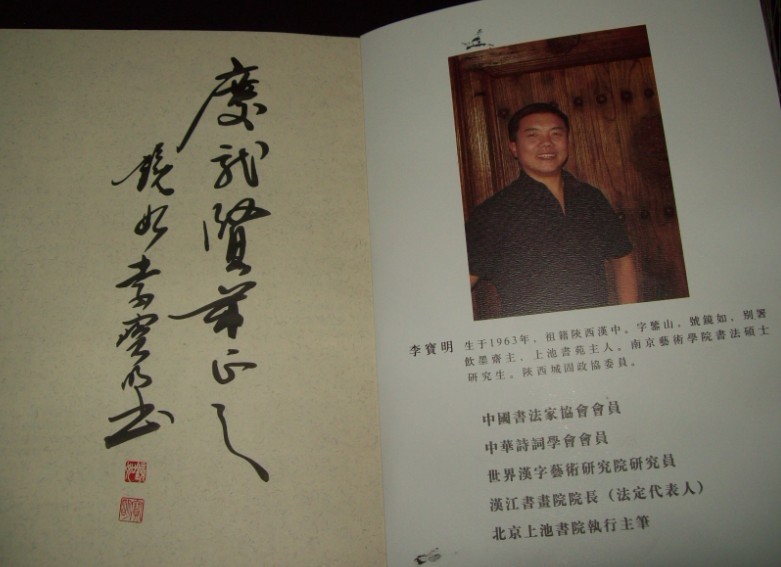 慶龍賢弟正之
鏡如李寶明書
李寶明 生于1963年，祖籍陝西漢中。字鑒山，號鏡如，别署
飲墨齋主、上池書苑主人。南京藝術學院書法碩士
研究生。陝西城固政協委員。
中國書法家協會會員
中華詩詞學會會員
世界漢字藝術研究院研究員
漢江書畫院院長（法定代表人）
北京上池書院執行主筆